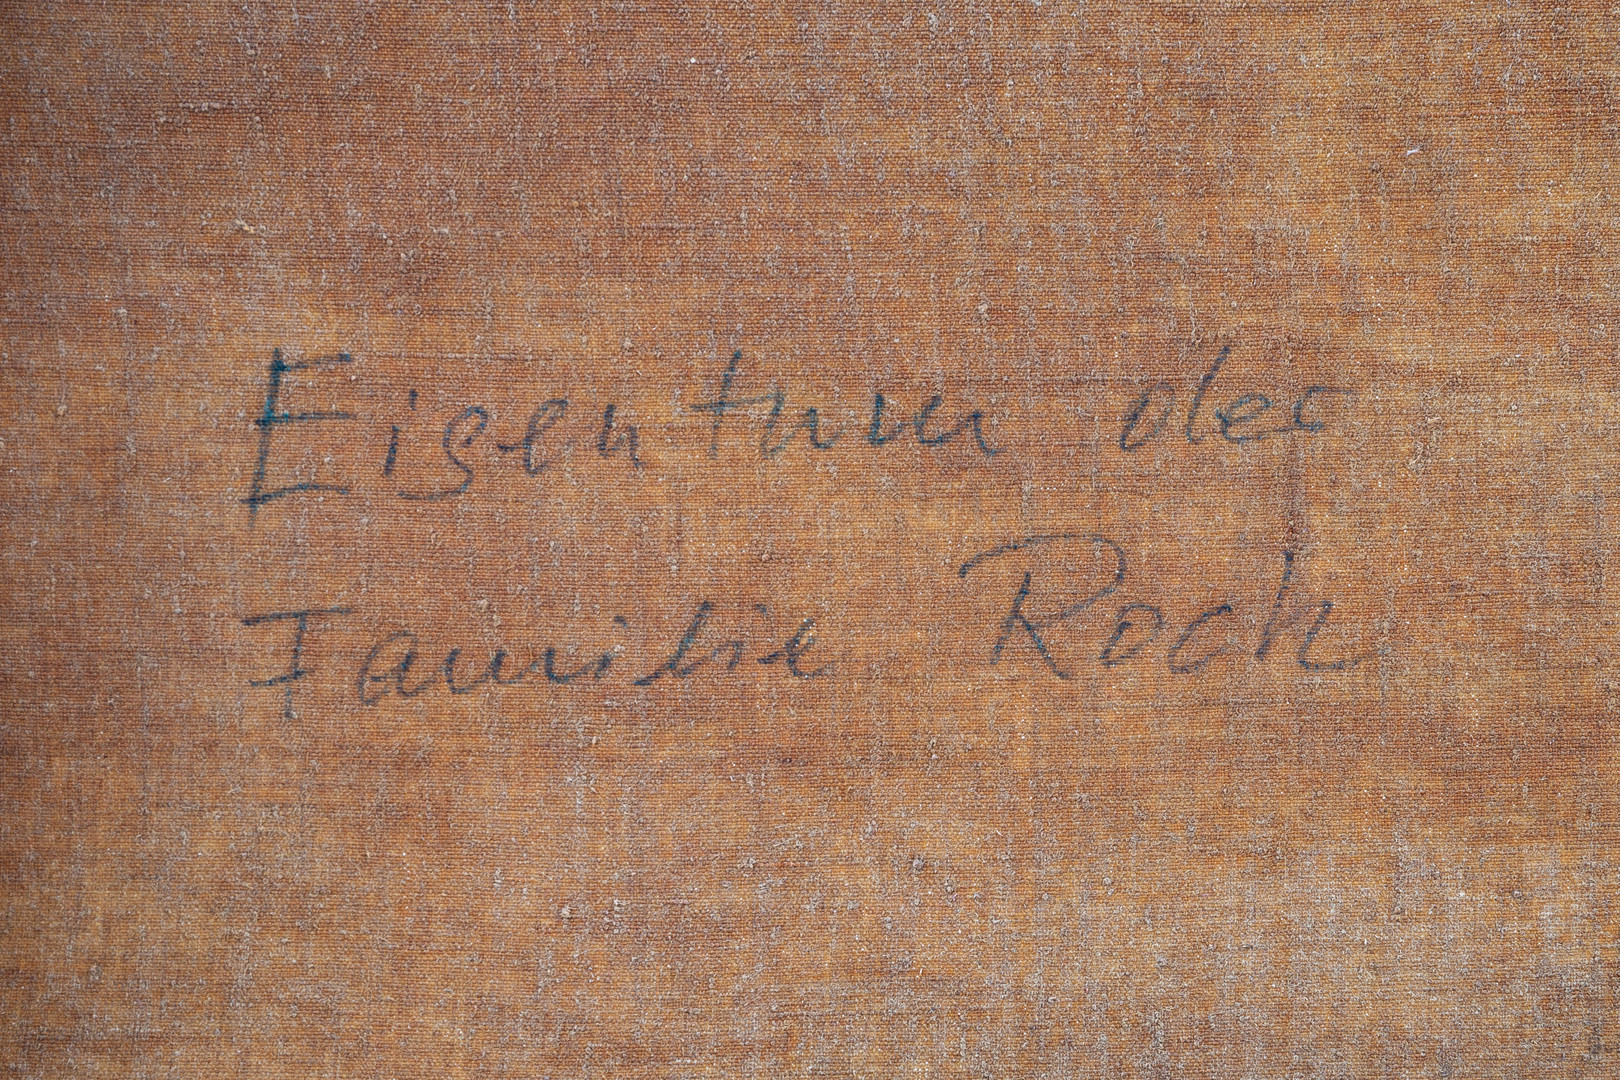 Eigentum der
Familie Rock